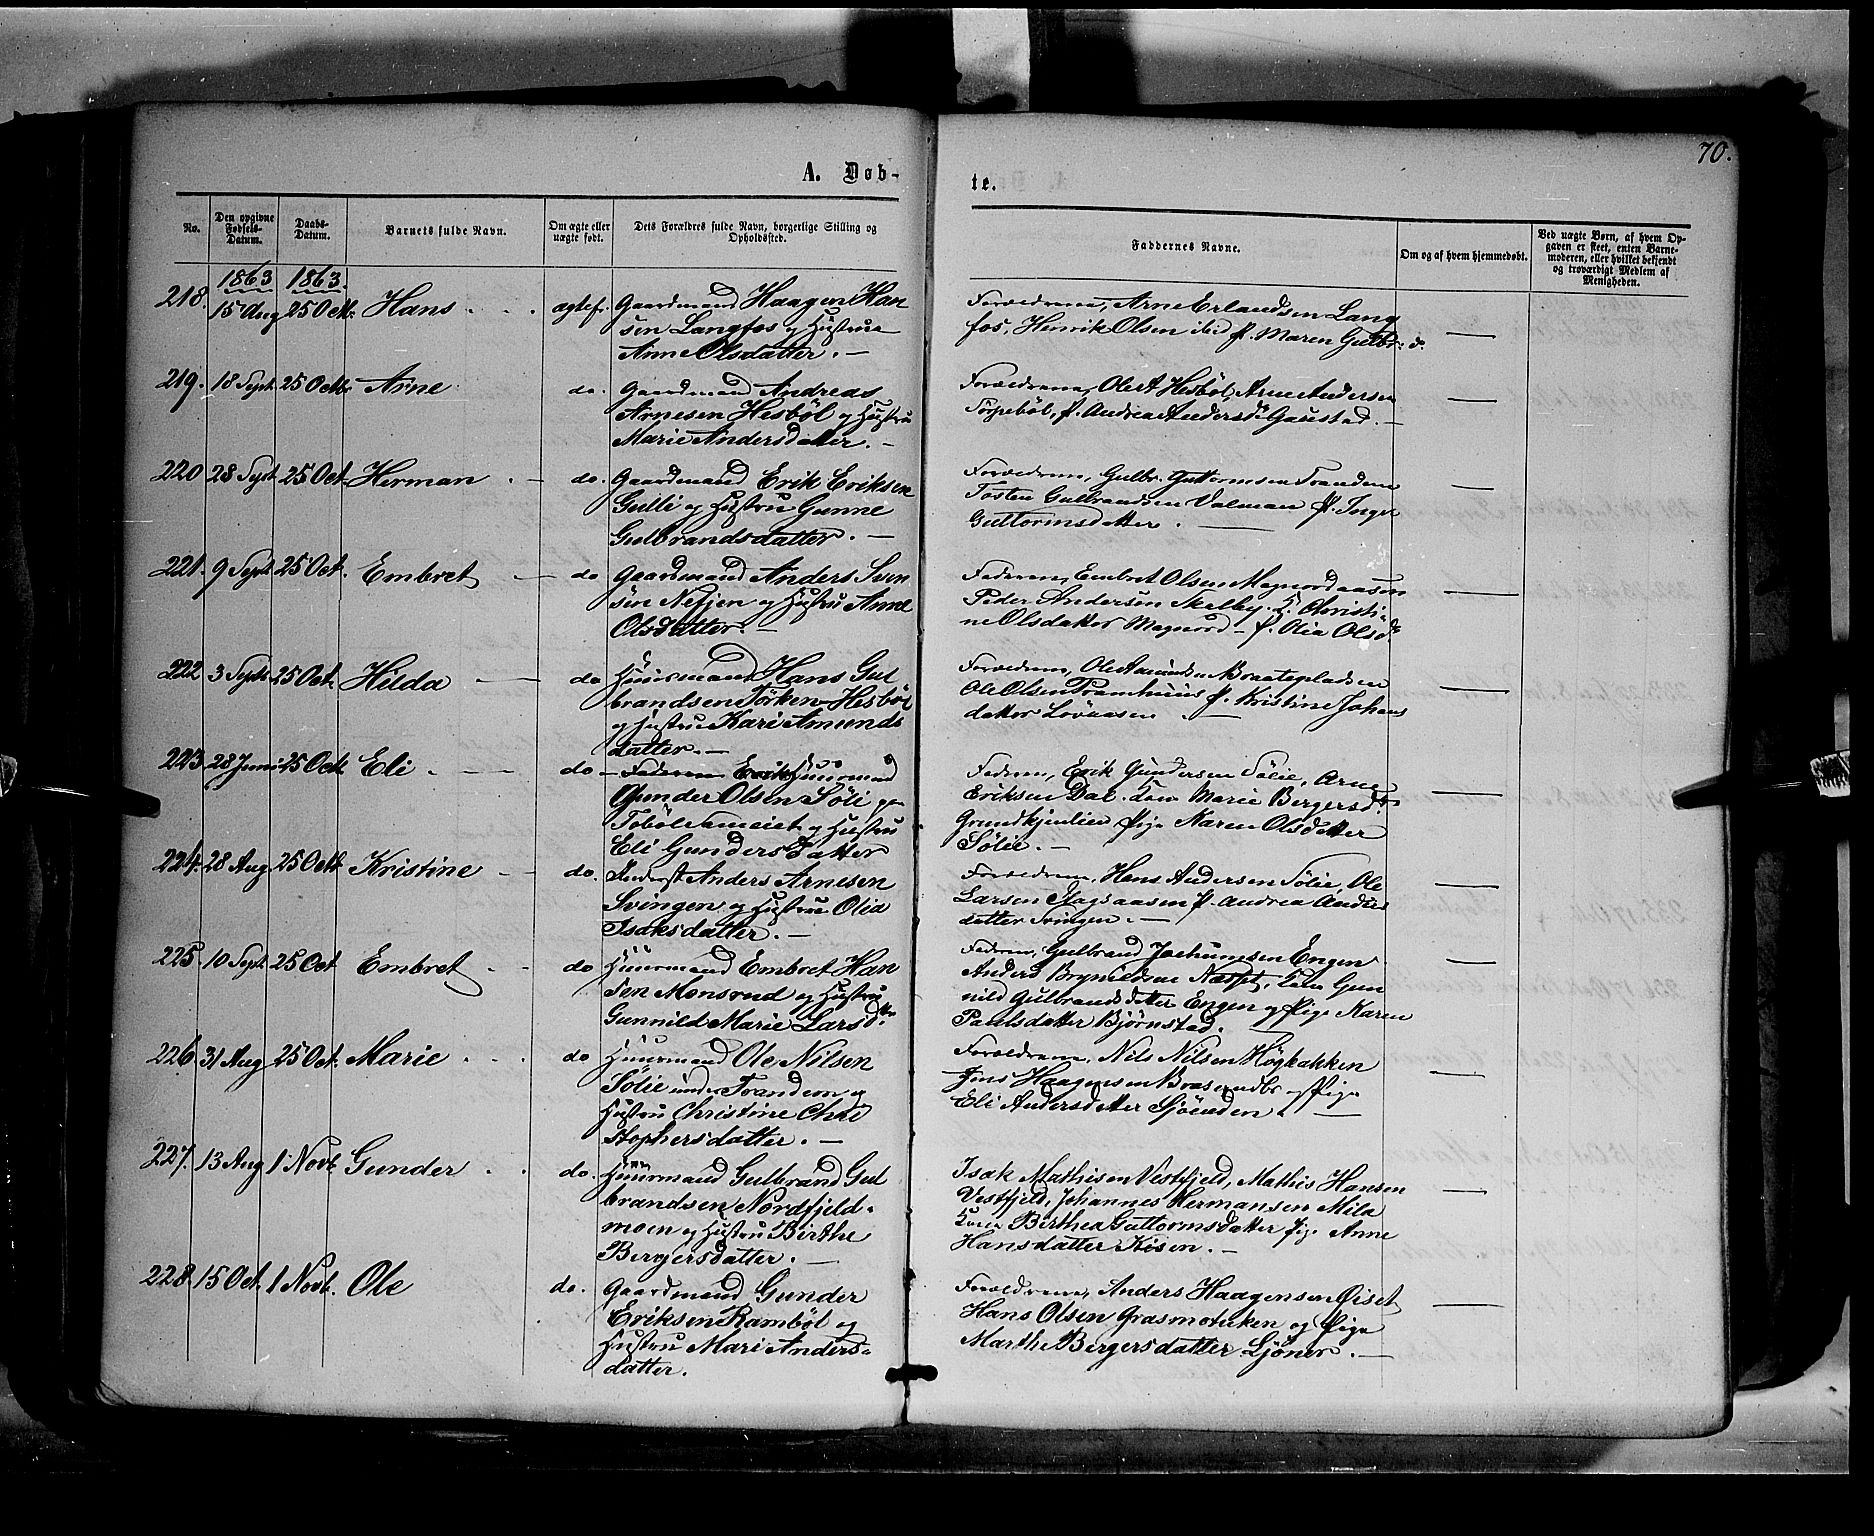 70.
A. Döb-
te.
No.
Den opgivne Fødsels-Datum.
Daabs-Datum.
Barnets fulde Navn.
Om ægte eller uægte født.
Dets Forældres fulde Navn, borgerlige Stilling og Opholdsted.
Faddernes Navne.
Om og af hvem hjemmedøbt.
Ved uægte Børn, af hvem Opgaven er skeet, enten Barnemoderen, eller hvilket bekjendt og troværdigt Medlem af Menigheden.
1863 1863.
218. 15 Aug 25 Oct. Hans ægtef. Gaardmand Haagen Han
sen Langfos og Hustrue
Anne Olsdatter. —
Forældrene, Arne Erlandsen Lang
fos, Henrik Olsen ibid P. Maren Gulbr. d.
219. 18 Sept. 25 Oct. Arne do. Gaardmand Andreas
Arnesen Hesböl og Hustru
Marie Andersdatter. —
Forældrene, Ole A Hesböl, Arne Andersen
Törpeböl, P. Andrea Andersd. Gaustad. —
220 28 Sept 25 Oct. Herman do. Gaardmand Erik Eriksen
Gulli og Hustru Gunne
Gulbrandsdatter. —
Forældrene, Gulbr. Guttormsen Trandem
Tosten Gulbrandsen Valman P. Inger
Guttormsdatter. —
221. 9 Sept 25 Oct. Embret do Gaardmand Anders Sven
sen Nefjen og Hustru Anne
Olsdatter. —
Faderen, Embret Olsen Magnordaasen
Peder Andersen Skelby. K. Christi
ne Olsdatter Magnord — P. Olia Olsd
222 3 Sept 25 Oct. Hilda do Huusmand Hans Gul
brandsen Törken-Hesböl
og Hustru Kari Amunds
datter. —
Forældrene, Ole Amundsen Braatepladsen
Ole Olsen Framhuus P. Kristine Johans
datter Lövaasen —
223. 28 Juni 25 Oct. Eli do — Faderen Erik Huusmand
Gunder Olsen Söli paa
Toböl Sameiet og Hustru
Eli Gundersdatter
Faderen, Erik Gundersen Sölie, Arne
Eriksen Dal. Kone Marie Bergersd
Grundkjenlien Pige Karen Olsdatter
Sölie. —
224. 28 Aug 25 Oct. Kristine do. Inderst Anders Arnesen
Svingen og Hustru Olia
Isaksdatter. —
Forældrene, Hans Andersen Sölie, Ole
Larsen Slagsaasen P. Andrea Anders
datter Svingen. —
225. 10 Sept. 25 Oct Embret do Huusmand Embret Han
sen Monsrud og Hustru
Gunnild Marie Larsd.
Faderen, Gulbrand Jochumsen Engen
Anders Brynildsen Næsset, Kone Gun
nild Gulbrandsdatter Engen og Pige Karen
Paulsdatter Bjørnstad.
226 31 Aug 25 Oct. Marie do Huusmand Ole Nilsen
Sölie under Trandem og
Hustru Christine Chri
stophersdatter. —
Forældrene, Nils Nilsen Högbakken
Jens Haagensen Brasrudbr og Pige
Eli Andersdatter Sjöenden. —
227. 13 Aug 1 Novb. Gunder do. Huusmand Gulbrand Gul
brandsen Nordfjeld-
moen og Hustru Birthe
Bergersdatter. —
Isak Mathisen Vestfjeld, Mathis Hansen
Vestfjeld, Johannes Hermansen Mila
Kone Birthea Guttormsdatter Pige Anne
Hansdatter Kisen. —
228. 15 Oct. 1 Novb. Ole do. Gaardmand Gunder
Eriksen Ramböl og
Hustru Mari Anders-
datter.
Forældrene, Anders Haagensen Öiset
Hans Olsen Grasmobakken og Pige
Marthe Bergersdatter Ljöner. —